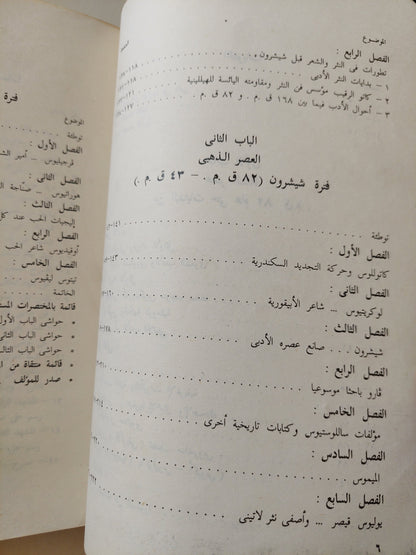 الموضوع
الفصل الرابع :
تطورات فى النثر والشعر قبل شيشرون
١ – بدايات النثر الأدبى
٢ – كاتو الرقيب مؤسس فن النثر ومقاومته اليائسة للهيللينية
٣ – أحوال الأدب فيما بين ١٦٨ ق . م . و ٨٢ ق . م .
الباب الثانى
العصر الذهبى
فترة شيشرون (٨٢ ق . م . – ٤٣ ق . م .)
توطئة
الفصل الأول :
كاتوللوس وحركة التجديد السكندرية
الفصل الثانى :
لوكريتيوس .. شاعر الأبيقورية
الفصل الثالث :
شيشرون . . . صانع عصره الأدبى
الفصل الرابع :
ڤارو باحثا موسوعيا
الفصل الخامس :
مؤلفات ساللوستيوس وكتابات تاريخية أخرى
الفصل السادس :
الميموس
الفصل السابع :
يوليوس قيصر ... وأصفى نثر لاتينى
٦
الموضوع
توطئة
الفصل الأول :
ڤرجيليوس .. أمير
الفصل الثانى :
هوراتيوس .. صناجة
الفصل الثالث :
إليجيات الحب عند
الفصل الرابع :
أوڤيديوس شاعر الحب
الفصل الخامس :
تيتوس ليڤيوس
الخاتمة
قائمة بالمختصرات
• حواشى الباب الأول
• حواشى الباب الثانى
• حواشى الباب
• قائمة منتقاة من
• صدر للمؤلف